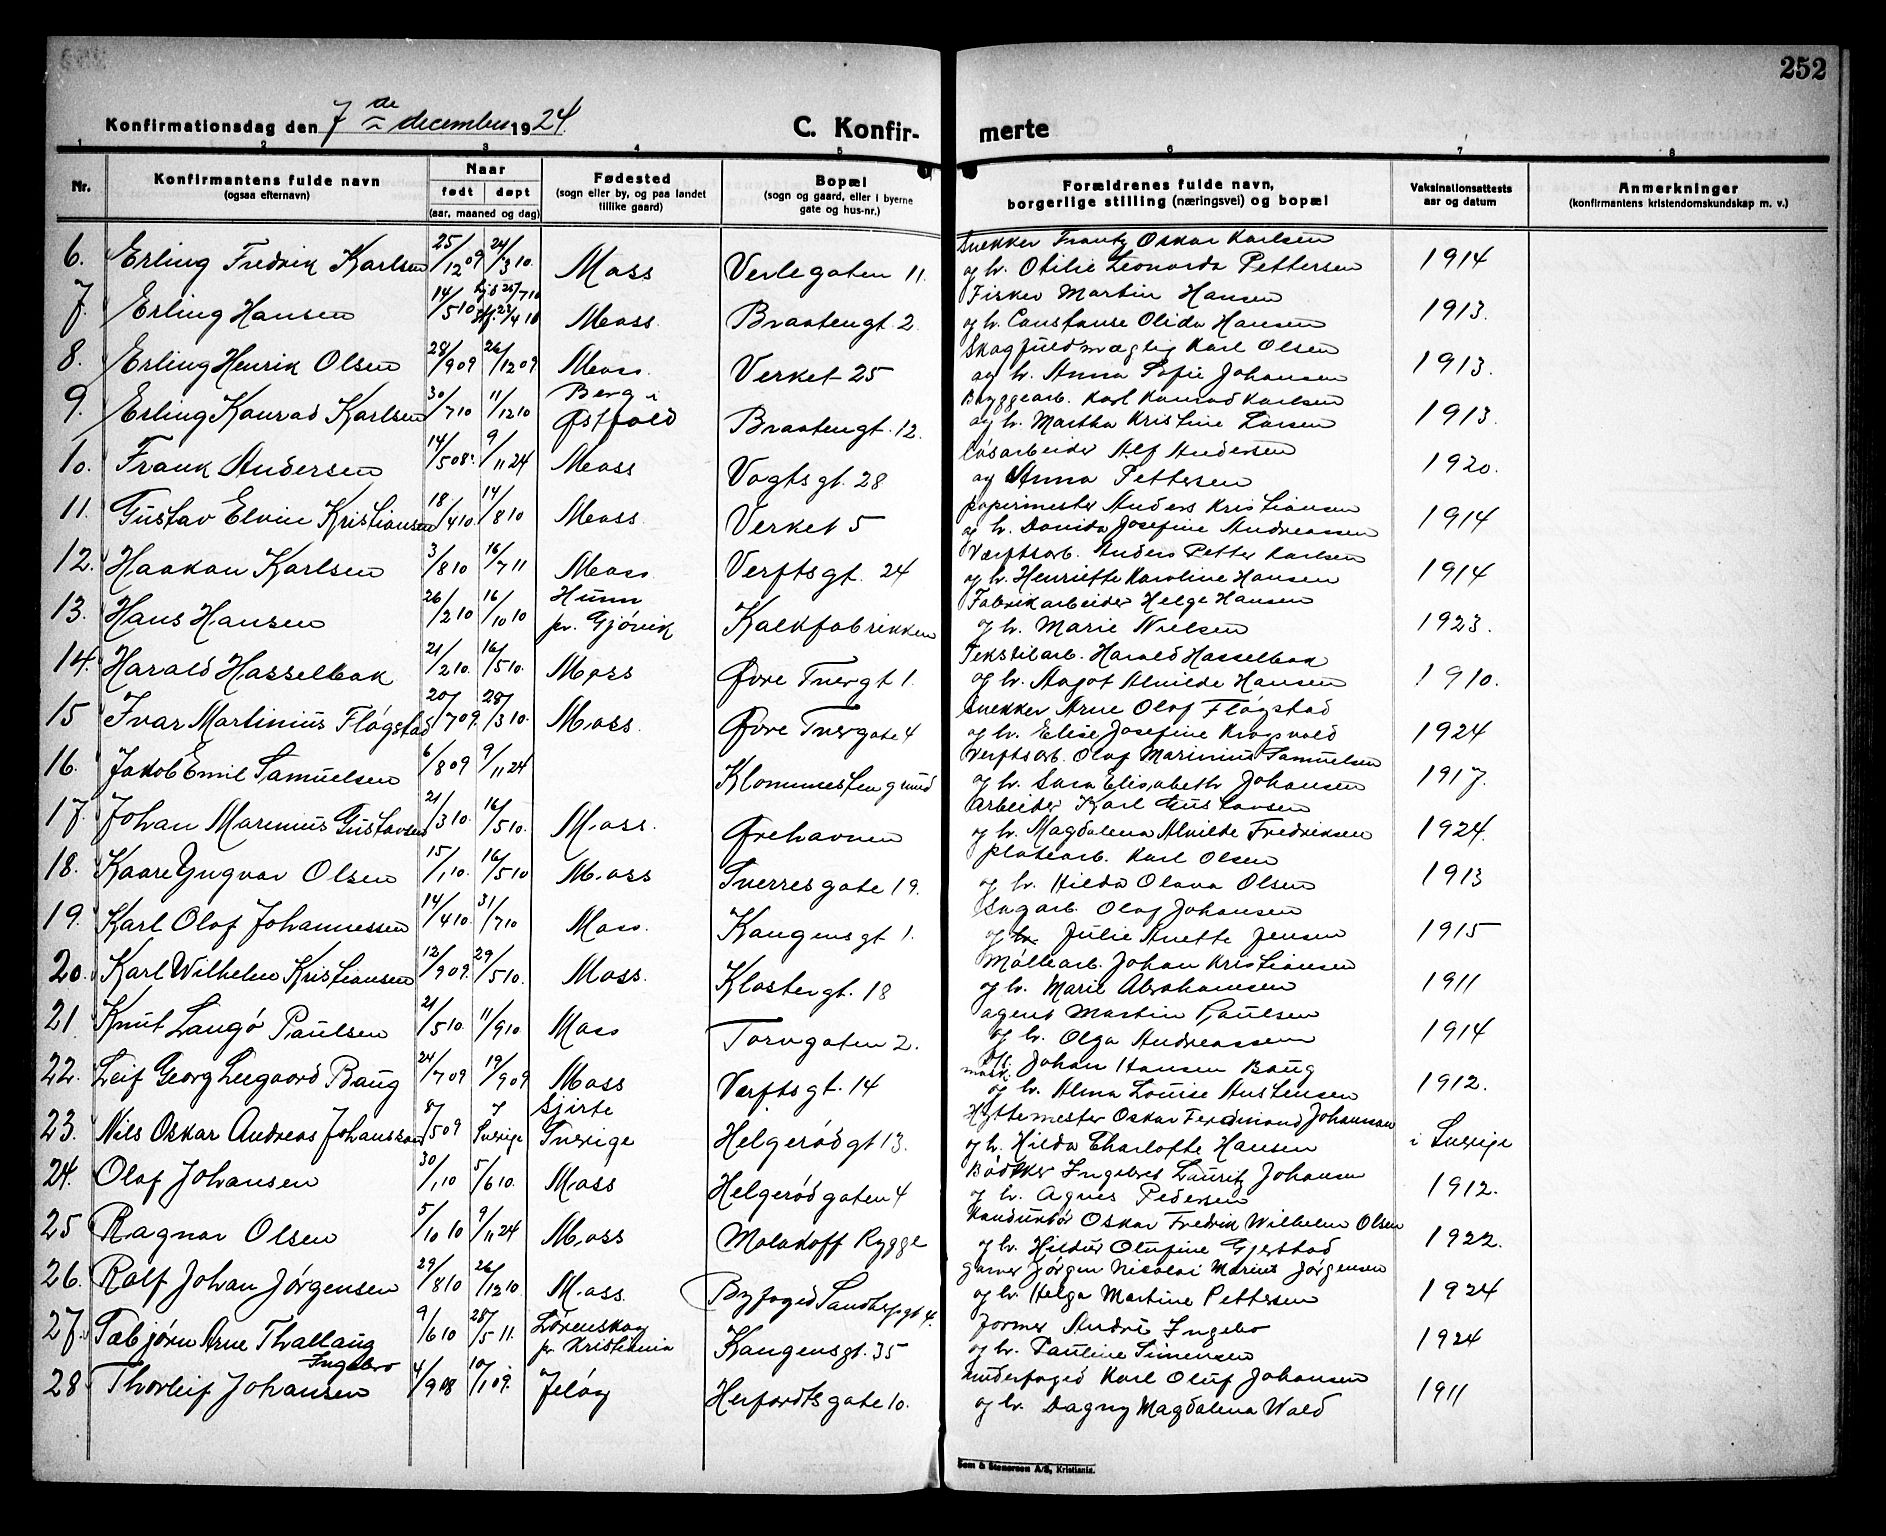 252
Konfirmationsdag den 7de december 1924.
C. Konfir-
merte
1 2 3 4 5 6 7 8
Nr.
Konfirmantens fulde navn
(ogsaa efternavn)
Naar
født døpt
(aar, maaned og dag)
Fødested
(sogn eller by, og paa landet
tillike gaard)
Bopæl
(sogn og gaard, eller i byerne
gate og hus-nr.)
Forældrenes fulde navn,
borgerlige stilling (næringsvei) og bopæl
Vaksinationsattests
aar og datum
Anmerkninger
(konfirmantens kristendomskundskap m. v.)
6. Erling Fredrik Karlsen 25/12 09 24/3 10. Moss Verlegaten 11. Snekker Frantz Oskar Karlsen
og h. Otilie Leonarda Pettersen 1914
7. Erling Hansen 14/5 10 25/7 10 23/4 10 Moss. Braatengt. 2. Fisker Martin Hansen
og h. Constanse Olida Hansen 1913.
8. Erling Henrik Olsen 28/9 09 26/12 09 Moss. Verket 25 Skogfuldmægtig Karl Olsen
og h. Anna Sofie Johansen 1913.
9. Erling Konrad Karlsen 30/7 10 11/12 10 Berg i
Østfold Braatengt. 12. Bryggearb. Karl Konrad Karlsen
og h. Martha Kristine Larsen 1913.
10. Frank Andersen 14/5 08. 9/11 24 Moss Vogtsgt. 28 Løsarbeider Alf Andersen
og Anna Pettersen 1920.
11. Gustav Elvin Kristiansen 18/4 10. 14/8 10 Moss. Verket 5 papirmester Anders Kristiansen
og h. Danida Josefine Andreassen 1914
12. Haakon Karlsen 3/8 10 16/7 11 Moss. Verftsgt. 24 Værftsarb. Anders Petter Karlsen
og h. Henriette Karoline Hansen 1914
13. Hans Hansen 26/2 10 16/10 10 Hunn
pr. Gjøvik Kalkfabrikken Fabrikarbeider Helge Hansen
og h. Marie Nielsen 1923.
14. Harald Hasselbak 21/2 10. 16/5 10. Moss Øvre Tvergt 1. Tekstilarb. Harald Hasselbak
og h. Aagot Alvilde Hansen 1910.
15 Ivar Martinius Fløgstad 20/7 09. 28/3 10. Moss. Øvre Tvergate 4 Snekker Arne Olaf Fløgstad
og h. Elise Josefine Krogsvold 1924
16. Jakob Emil Samuelsen 6/8 09 9/11 24 Klommestengrund Verftsarb. Olaf Marinius Samuelsen
og h. Sara Elisabeth Johansen 1917.
17. Johan Marinius Gustavsen 21/3 10. 16/5 10. Moss. Ørehavnen Arbeider Karl Gustavsen
og h. Magdalena Alvilde Fredriksen 1924.
18. Kaare Yngvar Olsen 15/1 10. 16/5 10 Moss Sverresgate 19. platearb. Karl Olsen
og h. Hilda Olava Olsen 1913
19. Karl Olaf Johannessen 14/4 10. 31/7 10 Moss. Kongensgt 1. Sagarb. Olaf Johansen
og h. Julie Anette Jensen 1915
20. Karl Wilhelm Kristiansen 12/9 09. 29/5 10. Moss. Klostergt. 18 Møllearb. Johan Kristiansen
og h. Marie Abrahamsen 1911
21. Knut Langø Paulsen 21/5 10. 11/9 10 Moss Torvgaten 2. agent Martin Paulsen
og h. Olga Andreassen 1914
22. Leif Georg Leegaard Baug 24/7 09 19/9 09 Moss Værftsgt. 14 mask. Johan Hansen Baug
og h. Alma Louise Austensen 1912.
23. Nils Oskar Andreas Johansson 8/5 09 i Sverige Sjirte
Sverige Helgerødgt 13. Hyttemester Oskar Ferdinand Johannson
og h. Hilda Charlotte Hansen i Sverige
24. Olaf Johansen 30/1 10 5/6 10. Moss Helgerødgaten 4 Bødker Ingebret Lauritz Johansen
og h. Agnes Pedersen 1912.
25 Ragnar Olsen 5/10 10 9/11 24 Moss Malakoff Rygge Konduktør Oskar Fredrik Wilhelm Olsen
og h. Hildur Olufine Gjerstad 1922.
26. Rolf Johan Jørgensen 29/8 10 26/12 10. Moss. Byfoged Sandbergsgt 4. garver Jørgen Nicolai Marius Jørgensen
og h. Helga Martine Pettersen 1924
27. Tabjørn Arne Thallaug
Ingebro 9/6 10 28/5 11. Lørenskog
pr. Kristiania Kongensgt. 35 former André Ingebo
og h. Pauline Simensen 1924
28 Thorleif Johansen 4/9 08 10/1 09. Jeløy Herfordtsgate 10. Underfoged Karl Oluf Johansen
og h. Dagny Magdalena Wold 1911
Sem & Stenersen A/S, Kristiania.